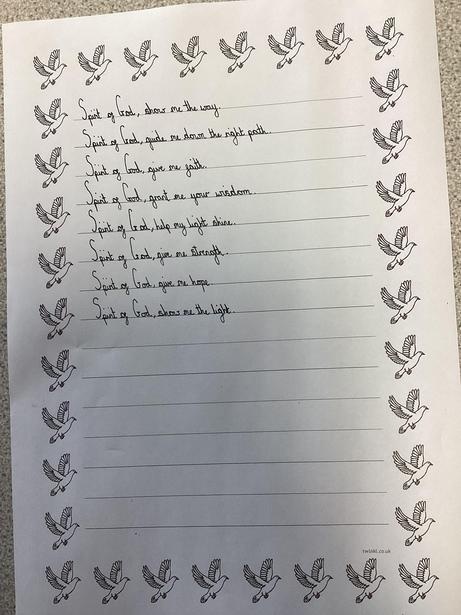 Spirit of God, show me the way.
Spirit of God, guide me down the right path.
Spirit of God, give me faith.
Spirit of God, grant me your wisdom.
Spirit of God, help my light shine.
Spirit of God, give me strength.
Spirit of God, give me hope.
Spirit of God, show me the light.
twinkl.co.uk